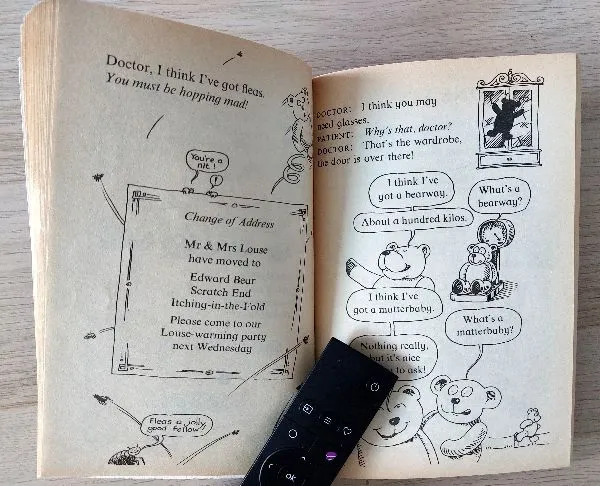 Doctor, I think I've got fleas.
You must be hopping mad!
You're a
nit!
!
Change of Address
Mr & Mrs Louse
have moved to
Edward Bear
Scratch End
Itching-in-the-Fold
Please come to our
Louse-warming party
next Wednesday
Fleas a jolly
good fellow!
DOCTOR: I think you may
need glasses.
PATIENT: Why's that, doctor?
DOCTOR: That's the wardrobe,
the door is over there!
I think I've
got a bearway.
What's a
bearway?
About a hundred kilos.
I think I've
got a mutterbaby.
What's a
matterbaby?
Nothing really,
but it's nice
to ask!
OK